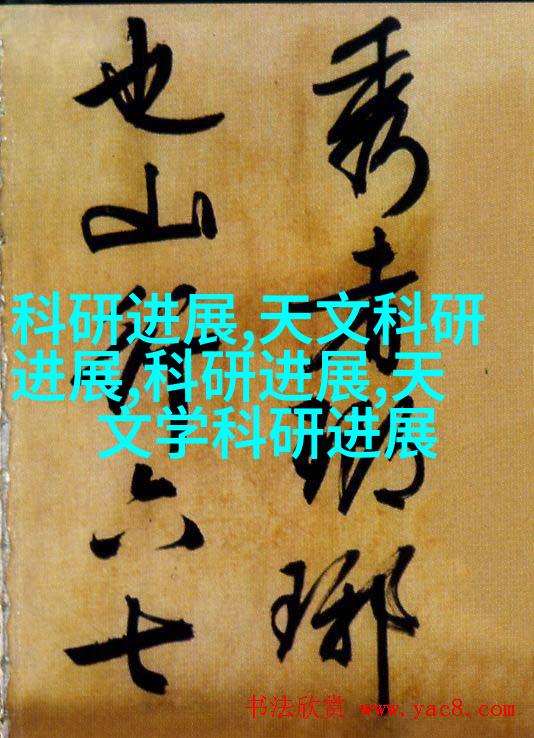 秀者瑯琊
也山行六七
科研进展,天文科研
进展,科研进展,天
文学科研进展
书法欣赏 www.yac8.com